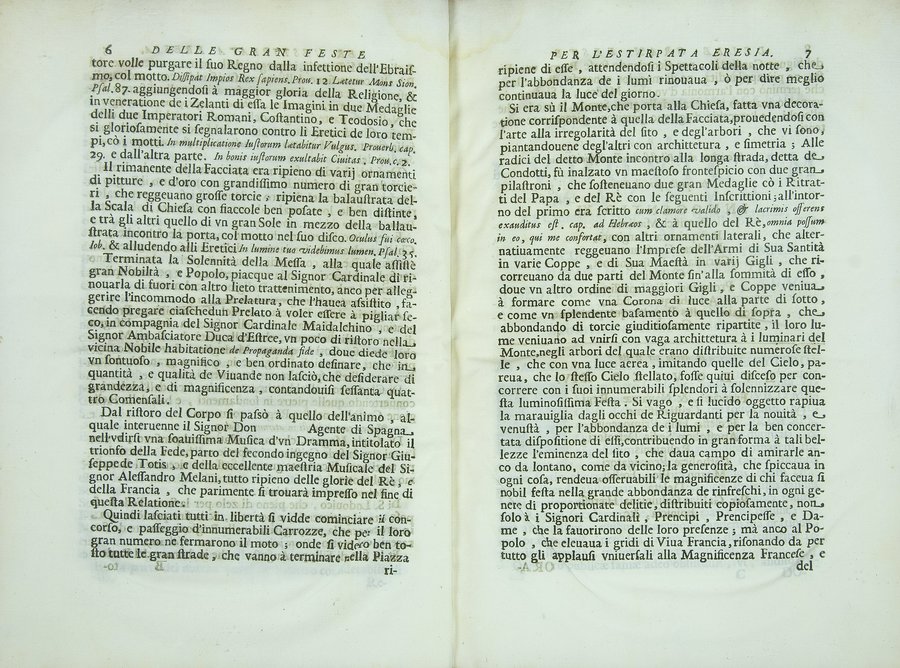 6 DELLE GRAN FESTE
tore volle purgare il ſuo Regno dalla infettione dell'Ebraiſ-
mo, col motto. Diſſipat Impios Rex ſapiens. Prou. 12 Lætetur Mons Sion.
Pſal. 87. aggiungendoſi à maggior gloria della Religione, &
in veneratione de i Zelanti di eſſa le Imagini in due Medaglie
delli due Imperatori Romani, Coſtantino, e Teodoſio, che
sì glorioſamente ſi ſegnalarono contro li Eretici de loro tem-
pi, cò i motti. In multiplicatione Iuſtorum lætabitur Vulgus. Prouerb. cap.
29. e dall'altra parte. In bonis iuſtorum exultabit Ciuitas, Prou. c. 2.
Il rimanente della Facciata era ripieno di varij ornamenti
di pitture, e d'oro con grandiſſimo numero di gran torcie-
ri, che reggeuano groſſe torcie; ripiena la balauſtrata del-
la Scala di Chieſa con fiaccole ben poſate, e ben diſtinte,
e trà gli altri quello di vn gran Sole in mezzo della ballau-
ſtrata incontro la porta, col motto nel ſuo diſco. Oculus fui cæco.
Iob. & alludendo alli Eretici In lumine tuo videbimus lumen. Pſal. 35.
Terminata la Solennità della Meſſa, alla quale aſſiſtè
gran Nobiltà, e Popolo, piacque al Signor Cardinale di ri-
nouarla di fuori con altro lieto trattenimento, anco per alleg-
gerire l'incommodo alla Prelatura, che l'hauea aſſiſtito, fa-
cendo pregare ciaſchedun Prelato à voler eſſere à pigliar ſe-
co, in compagnia del Signor Cardinale Maidalchino, e del
Signor Ambaſciatore Duca d'Eſtree, vn poco di riſtoro nella
vicina Nobile habitatione de Propaganda fide, doue diede loro
vn ſontuoſo, magnifico, e ben ordinato deſinare, che in
quantità, e qualità de Viuande non laſciò, che deſiderare di
grandezza, e di magnificenza, contandouiſi ſeſſanta quat-
tro Comenſali.
Dal riſtoro del Corpo ſi paſsò à quello dell'animo, al-
quale interuenne il Signor Don Agente di Spagna
nell'vdirſi vna ſoauiſſima Muſica d'vn Dramma, intitolato il
trionfo della Fede, parto del fecondo ingegno del Signor Giu-
ſeppede Totis, e della eccellente maeſtria Muſicale del Si-
gnor Aleſſandro Melani, tutto ripieno delle glorie del Rè, e
della Francia, che parimente ſi trouarà impreſſo nel fine di
queſta Relatione.
Quindi laſciati tutti in libertà ſi vidde cominciare il con-
corſo, e paſſeggio d'innumerabili Carrozze, che per il loro
gran numero ne fermarono il moto; onde ſi videro ben to-
ſto tutte le gran ſtrade, che vanno à terminare nella Piazza
ri-
PER L'ESTIRPATA ERESIA. 7
ripiene di eſſe, attendendoſi i Spettacoli della notte, che
per l'abbondanza de i lumi rinouaua, ò per dire meglio
continuaua la luce del giorno.
Si era sù il Monte, che porta alla Chieſa, fatta vna decora-
tione corriſpondente à quella della Facciata, prouedendoſi con
l'arte alla irregolarità del ſito, e degl'arbori, che vi ſono,
piantandouene degl'altri con architettura, e ſimetria; Alle
radici del detto Monte incontro alla longa ſtrada, detta de
Condotti, fù inalzato vn maeſtoſo frontespicio con due gran
pilaſtroni, che ſoſteneuano due gran Medaglie cò i Ritrat-
ti del Papa, e del Rè con le ſeguenti Inſcrittioni; all'intor-
no del primo era ſcritto cum clamore valido, & lacrimis offerens
exauditus eſt, cap. ad Hebræos, & à quello del Rè, omnia poſſum
in eo, qui me confortat, con altri ornamenti laterali, che alter-
natiuamente reggeuano l'Impreſe dell'Armi di Sua Santità
in varie Coppe, e di Sua Maeſtà in varij Gigli, che ri-
correuano da due parti del Monte ſin'alla ſommità di eſſo,
doue vn altro ordine di maggiori Gigli, e Coppe veniua
à formare come vna Corona di luce alla parte di ſotto,
e come vn ſplendente baſamento à quello di ſopra, che
abbondando di torcie giuditioſamente ripartite, il loro lu-
me veniuano ad vnirſi con vaga architettura à i luminari del
Monte, negli arbori del quale erano diſtribuite numeroſe ſtel-
le, che con vna luce aerea, imitando quelle del Cielo, pa-
reua, che lo ſteſſo Cielo ſtellato, foſſe quiui diſceſo per con-
correre con i ſuoi innumerabili ſplendori à ſolennizzare que-
ſta luminoſiſſima Feſta. Sì vago, e sì lucido oggetto rapiua
la marauiglia dagli occhi de Riguardanti per la nouità, e
venuſtà, per l'abbondanza de i lumi, e per la ben concer-
tata diſpoſitione di eſſi, contribuendo in gran forma à tali bel-
lezze l'eminenza del ſito, che daua campo di amirarle an-
co da lontano, come da vicino; la generoſità, che ſpiccaua in
ogni coſa, rendeua oſſeruabili le magnificenze di chi faceua sì
nobil feſta nella grande abbondanza de rinfreſchi, in ogni ge-
nere di proportionate delitie, diſtribuiti copioſamente, non
ſolo à i Signori Cardinali, Prencipi, Prencipeſſe, e Da-
me, che la fauorirono delle loro preſenze; mà anco al Po-
polo, che eleuaua i gridi di Viua Francia, riſonando da per
tutto gli applauſi vniuerſali alla Magnificenza Franceſe, e
del